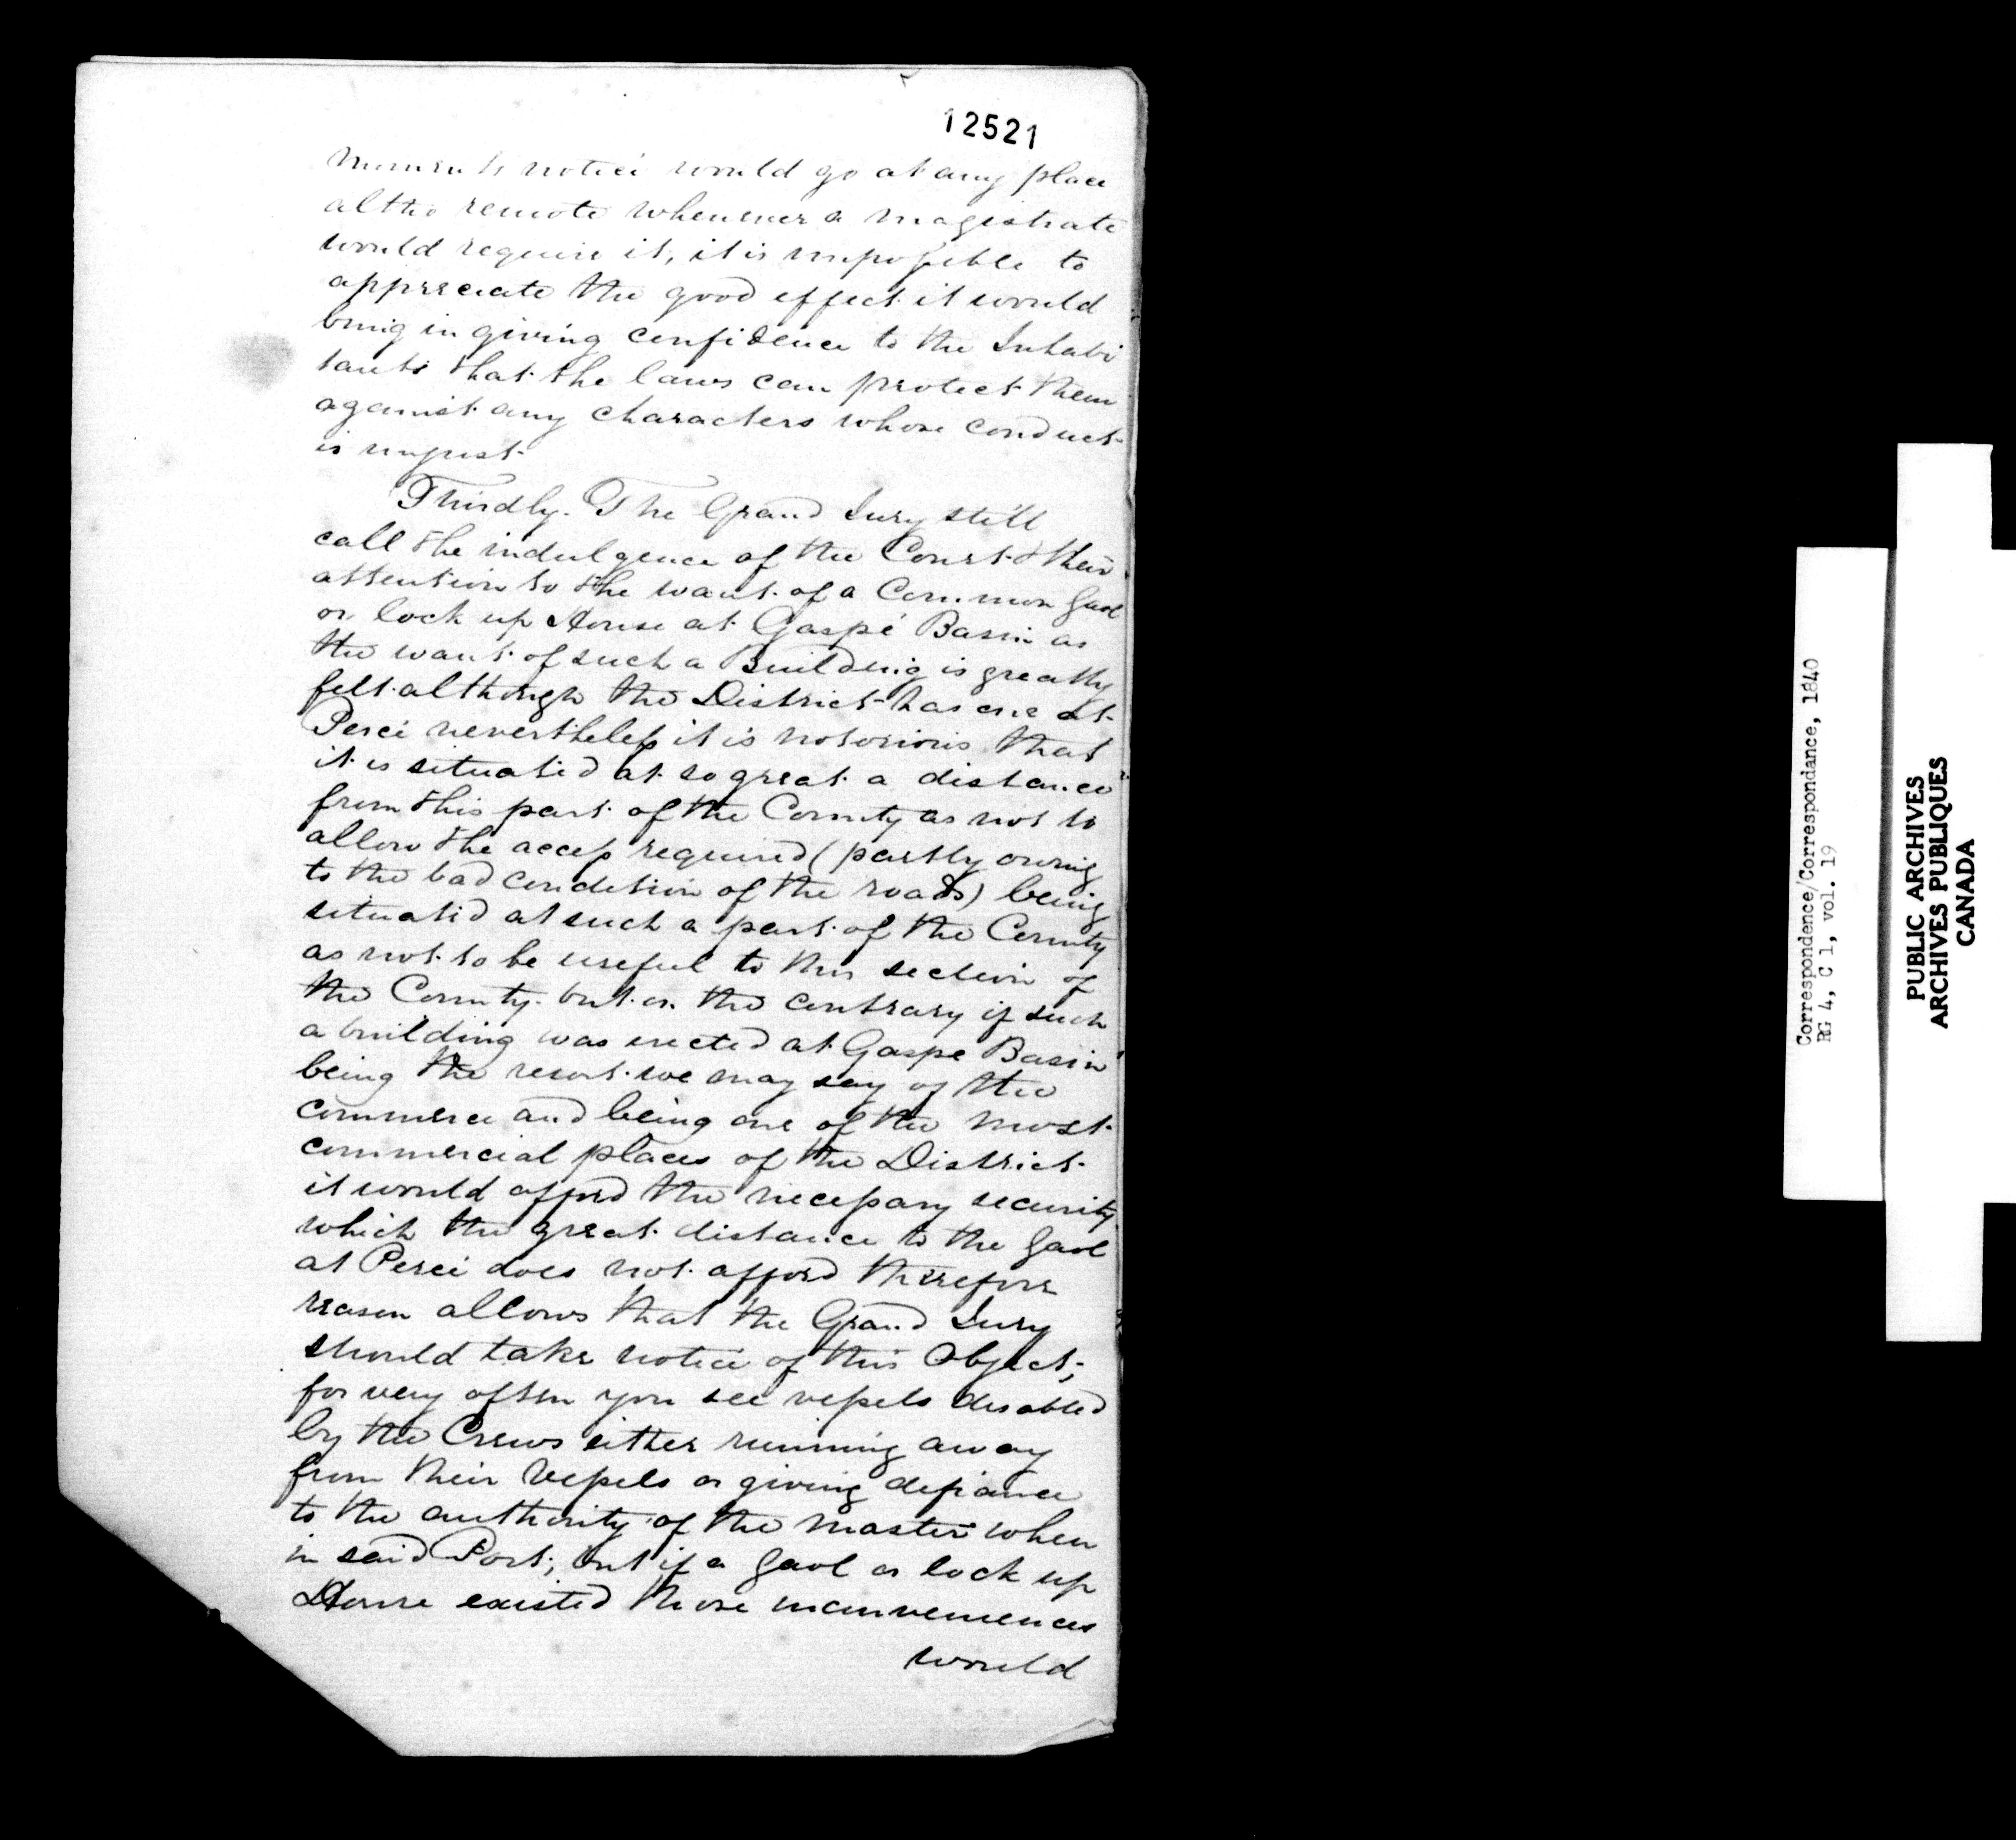 12521
moments notice would go at any place
altho remote whenever a magistrate
would require it, it is impossible to
appreciate the good effect it would
bring in giving confidence to the Inhabi
tants that the laws can protect them
against any characters whose conduct
is unjust
Thirdly. The Grand Jury still
call the indulgence of the Court & their
attention to the want of a Common Gaol
or lock up House at Gaspé Basin as
the want of such a Building is greatly
felt although the District has one at
Percé nevertheless it is notorious that
it is situated at so great a distance
from this part of the County as not to
allow the access required (partly owing
to the bad condition of the roads) being
situated at such a part of the County
as not to be useful to this section of
the County but on the contrary if such
a building was erected at Gaspe Basin
being the resort we may say of the
commerce and being one of the most
commercial places of the District
it would afford the necessary security
which the great distance to the Gaol
at Percé does not afford therefore
reason allows that the Grand Jury
should take notice of this Object;
for very often you see vessels disabled
by the Crews either running away
from their Vessels or giving defiance
to the authority of the master when
in said Port; but if a Gaol or lock up
House existed those inconveniences
would
Correspondence/Correspondance, 1840
RG 4, C 1, vol. 19
PUBLIC ARCHIVES
ARCHIVES PUBLIQUES
CANADA